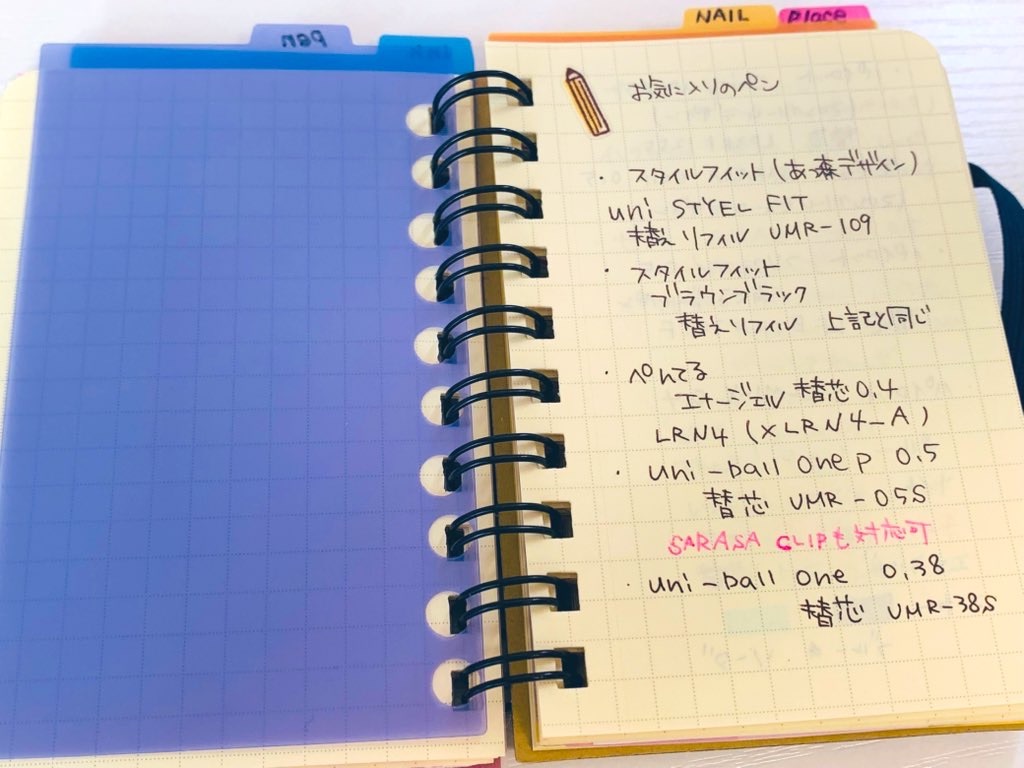 Pen
NAIL
Place
お気に入りのペン
・スタイルフィット(あつ森デザイン)
uni STYEL FIT
替えリフィル UMR-109
・スタイルフィット
ブラウンブラック
替えリフィル 上記と同じ
・ぺんてる
エナージェル 替芯 0.4
LRN4 (XLRN4-A)
・uni-ball one P 0.5
替芯 UMR-05S
SARASA CLIPも対応可
・uni-ball one 0.38
替芯 UMR-38S